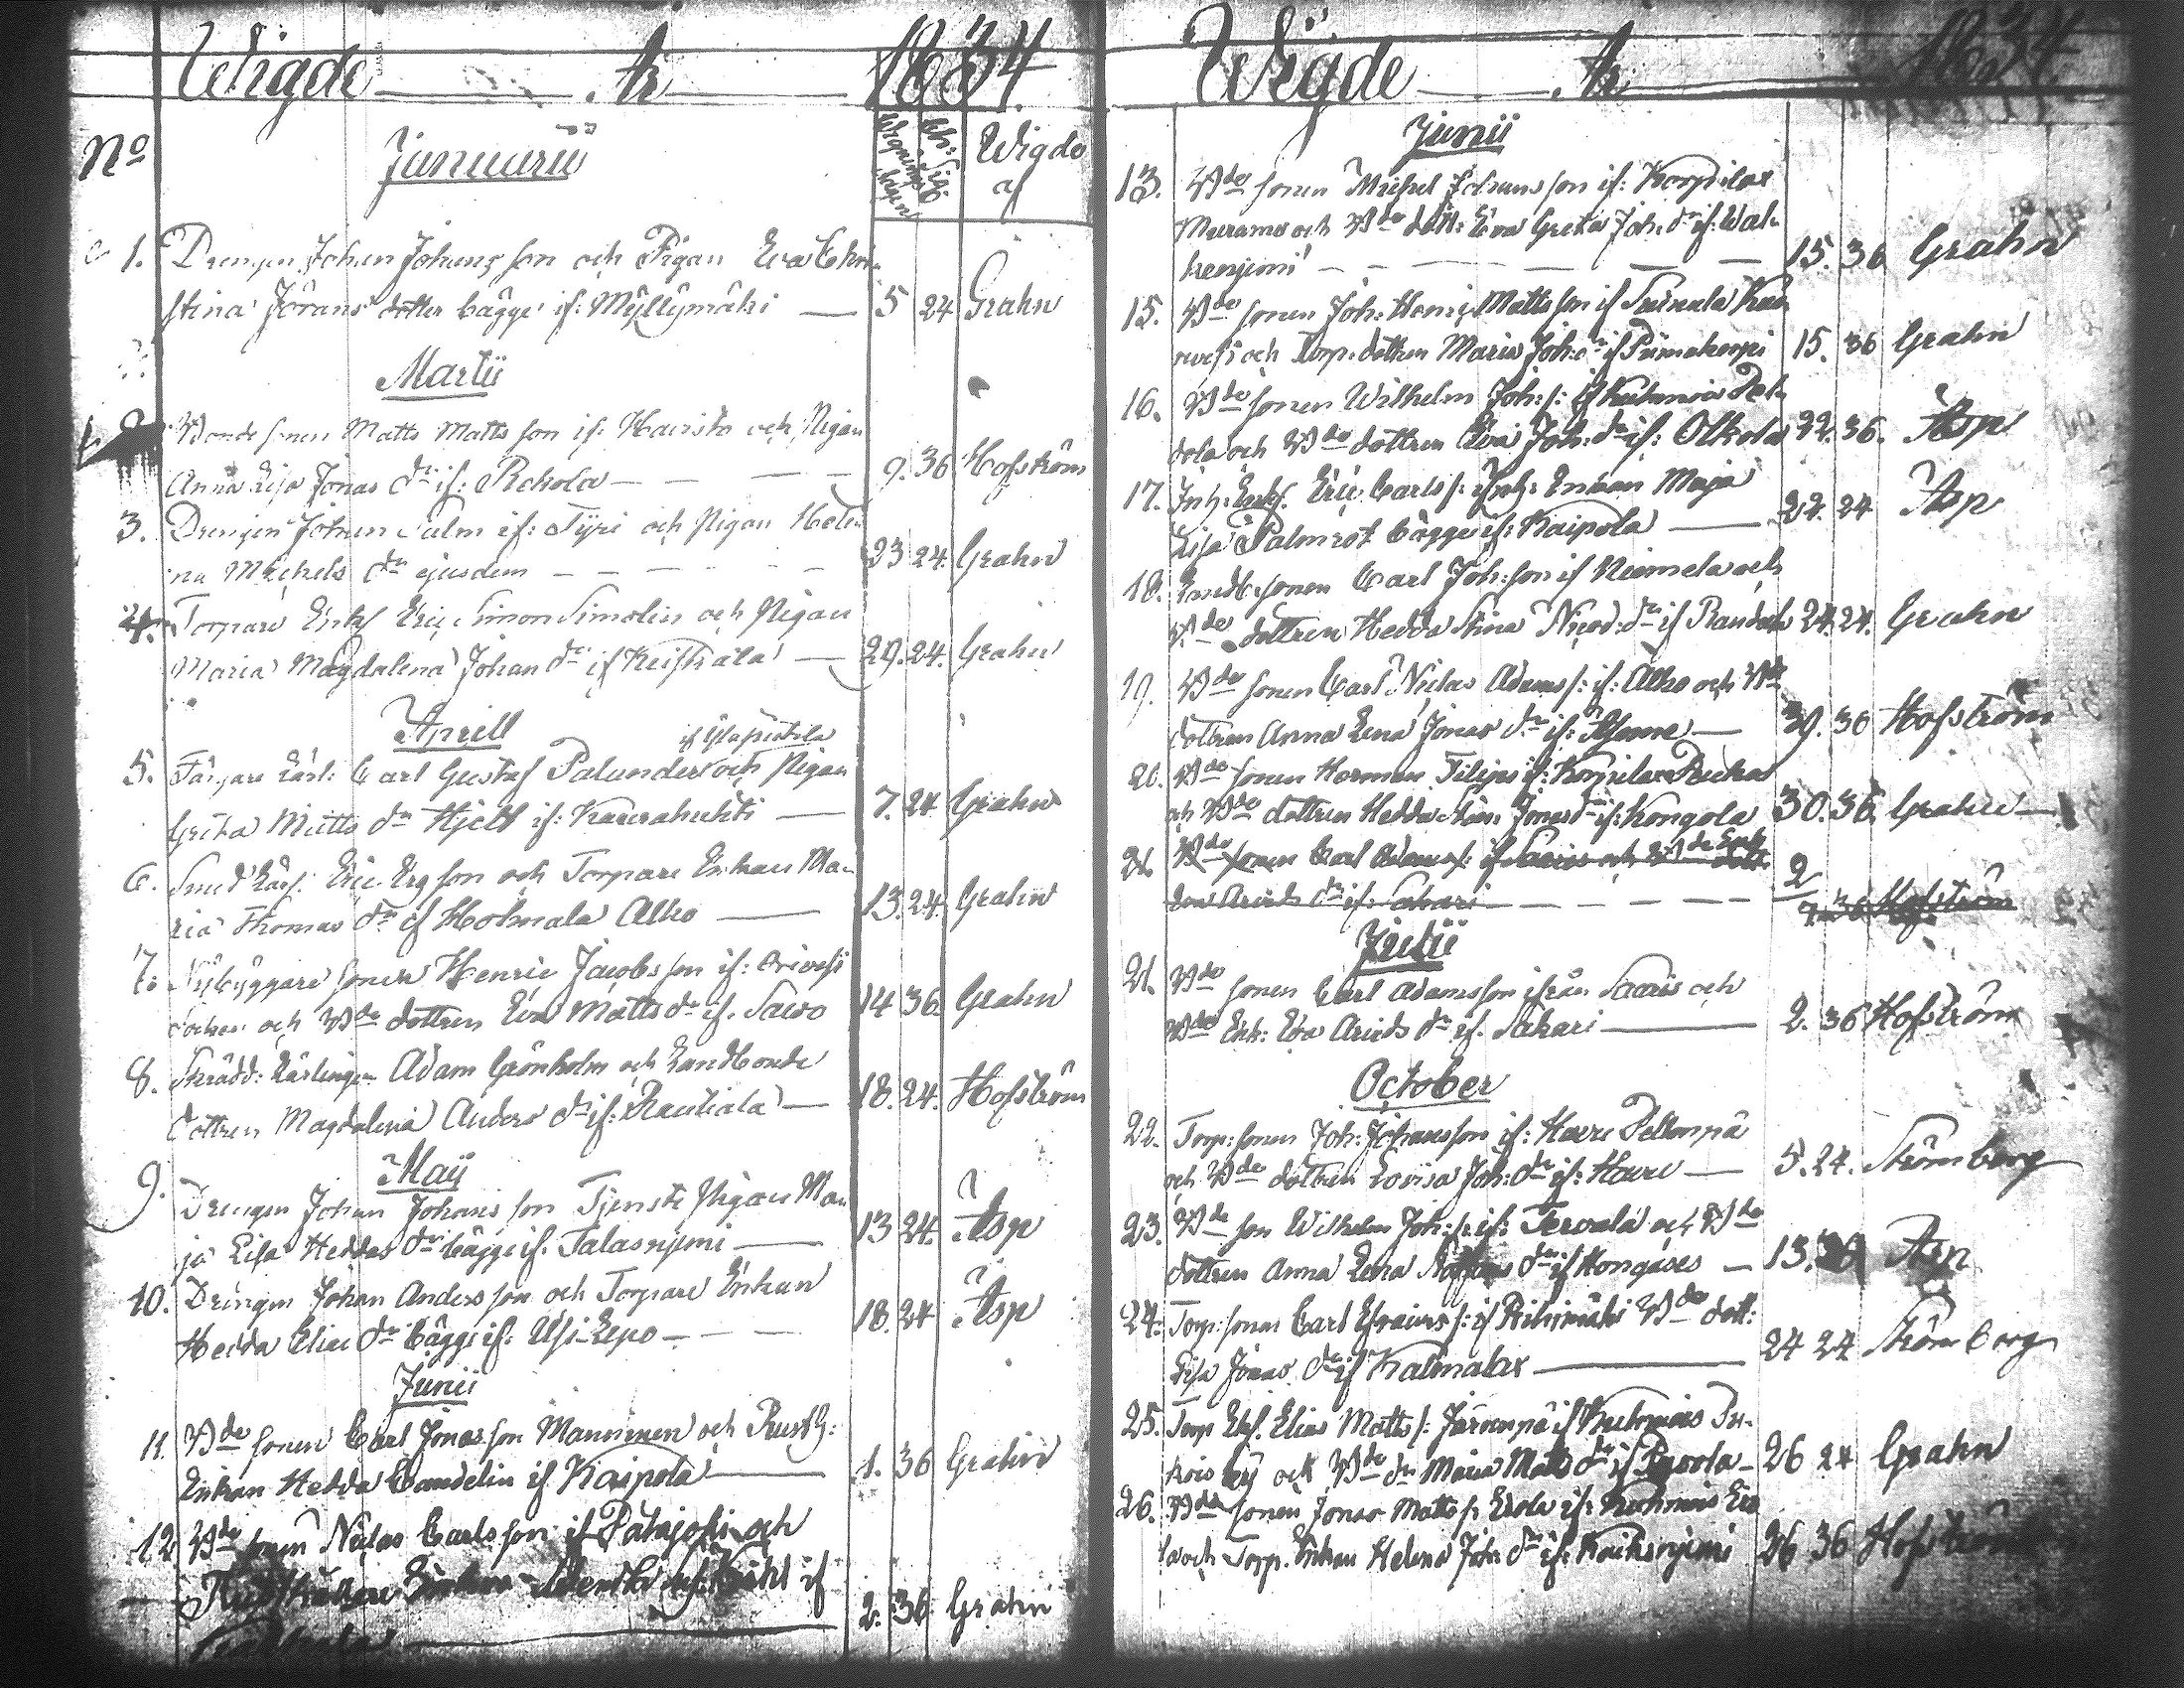 Wigde År 1834
No Januarii Wigde af
1. Drengen Johan Johans son och Pigan Eva Chri-
stina Jörans dotter bägge if: Myllymäki — 5 24 Grahn
Martii
2. Bonde sonen Matts Matts son if: Hairsto och Pigan
Anna Lisa Jonas dr if: Rekola — 9. 36 Hofström
3. Drengen Johan Palm if: Tyri och Pigan Hele-
na Michels dr ejusdem — 23 24. Grahn
4. Torpare Enkl Eric Simon Simolin och Pigan
Maria Magdalena Johan dr if — 29. 24. Grahn
Aprill
5. Färgare Lärl: Carl Gustaf Palander och Pigan
Greta Matts dr Hjelt if: — 7. 24 Grahn
6. Smed Lärl: Eric Erg son och Torpare Enkan Ma-
ria Thomas dr if Hokmala Alho — 13. 24. Grahn
7. Nybyggare sonen Henric Jacobs son if: Orivesi
Socken och Bde dottren Eva Matts dr if. Savo 14 36. Grahn
8. Skrädd: Lärlingen Adam Grönholm och Landbonde
dottren Magdalena Anders dr if: Rautiala — 18. 24. Hofström
Maij
9. Drengen Johan Johans son Tjenste Pigan Ma-
ja Lisa Heddas dr bägge if. Talasnjemi — 13 24. Asp
10. Drengen Johan Anders son och Torpare Enkan
Hedda Elias dr bägge if: Usi-Lepo — 18. 24 Asp
Junii
11. Bde sonen Carl Jonas son Manninen och Rusth:
Enkan Hedda Candelin if. Kaipola — 1. 36 Grahn
12 Bde sonen Niclas Carls son if Patajoki och
if
2. 36 Grahn
Wigde År 1834
Junii
13. Bde sonen Michel Johans son if: Korpilax
Murame och Bde dott: Eva Greta Joh. dr if: Wal-
kenjemi — 15. 36 Grahn
15. Bde sonen Joh: Henr: Matts son if
och Torp. dottren Maria Joh: dr if 15. 36 Grahn
16. Bde sonen Wilhelm Joh: s: if
och Bde dottren Eva Joh: dr if: Olkola 22. 36. Asp
17. Inh: Enkl. Eric Carls s: Inh: Enkan Maja
Lisa Palmrot bägge if: Kaipola — 22. 24 Asp
18. Landb. sonen Carl Joh: son if Niemela och
Bde dottren Hedda Stina Nicod: dr if 24. 24. Grahn
19. Bde sonen Carl Niclas Adams s: if: Alho och Bde
dottren Anna Lena Jonas dr if: — 30. 36 Hofström
20. Bde sonen Herman Filips if: Korpilax
och Bde dottren Hedda Jonas dr if: Kongola 30. 36. Grahn —
21. Bde sonen Carl Adams s: if Saaris och Bde Enk
Eva Arvids dr if: Sakari — 2 36 Hofström
Julii
21. Bde sonen Carl Adamsson ifrån Saaris och
Bde Enk: Eva Arvids dr if. Sakari — 2. 36 Hofström
October
22. Torp: sonen Joh: Johansson if: Havre Peltonpä
och Bde dottren Lovisa Joh: dr if: Havre — 5. 24. Strömberg
23. Bde son Wilhelm Joh: s: if: Tervala och Bde
dottren Anna Lena dr if Kongases — 13. 36 Asp
24. Torp: sonen Carl Efraims s: if Rihimäki Bde dott:
Lisa Jonas dr if Kalmalax — 24 24 Strömberg
25. Torp Ekl. Elias Matts s: Järvenpä if
och Bde dr Maria Matts dr if — 26 24 Grahn
26. Bde sonen Jonas Matts s: Erola if:
och Torp. Enkan Helena Joh: dr if: 26 36 Hofström